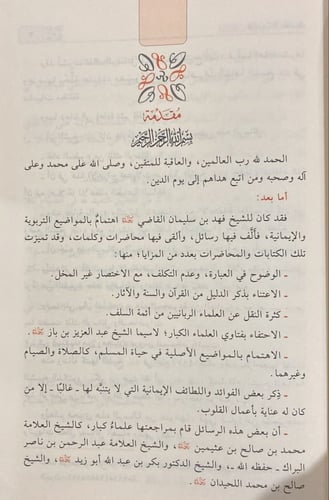 مقدمة
بسم الله الرحمن الرحيم
الحمد لله رب العالمين، والعاقبة للمتقين، وصلى الله على محمد وعلى
آله وصحبه ومن اتبع هداهم إلى يوم الدين.
أما بعد:
فقد كان للشيخ فهد بن سليمان القاضي رحمه الله اهتمامٌ بالمواضيع التربوية
والإيمانية، فألَّف فيها رسائل، وألقى فيها محاضرات وكلمات، وقد تميزت
تلك الكتابات والمحاضرات بعدد من المزايا؛ منها:
ـ الوضوح في العبارة، وعدم التكلف، مع الاختصار غير المخل.
ـ الاعتناء بذكر الدليل من القرآن والسنة والآثار.
ـ كثرة النقل عن العلماء الربانيين من أئمة السلف.
ـ الاحتفاء بفتاوي العلماء الكبار؛ لاسيما الشيخ عبد العزيز بن باز رحمه الله.
ـ الاهتمام بالمواضيع الأصلية في حياة المسلم، كالصلاة والصيام
وغيرهما.
ـ ذِكر بعض الفوائد واللطائف الإيمانية التي لا يتنبَّه لها ـ غالبًا ـ إلا من
كان له عناية بأعمال القلوب.
ـ أن بعض هذه الرسائل قام بمراجعتها علماءُ كبار، كالشيخ العلامة
محمد بن صالح بن عثيمين رحمه الله، والشيخ العلامة عبد الرحمن بن ناصر
البراك ـ حفظه الله ـ، والشيخ الدكتور بكر بن عبد الله أبو زيد رحمه الله، والشيخ
صالح بن محمد اللحيدان رحمه الله.